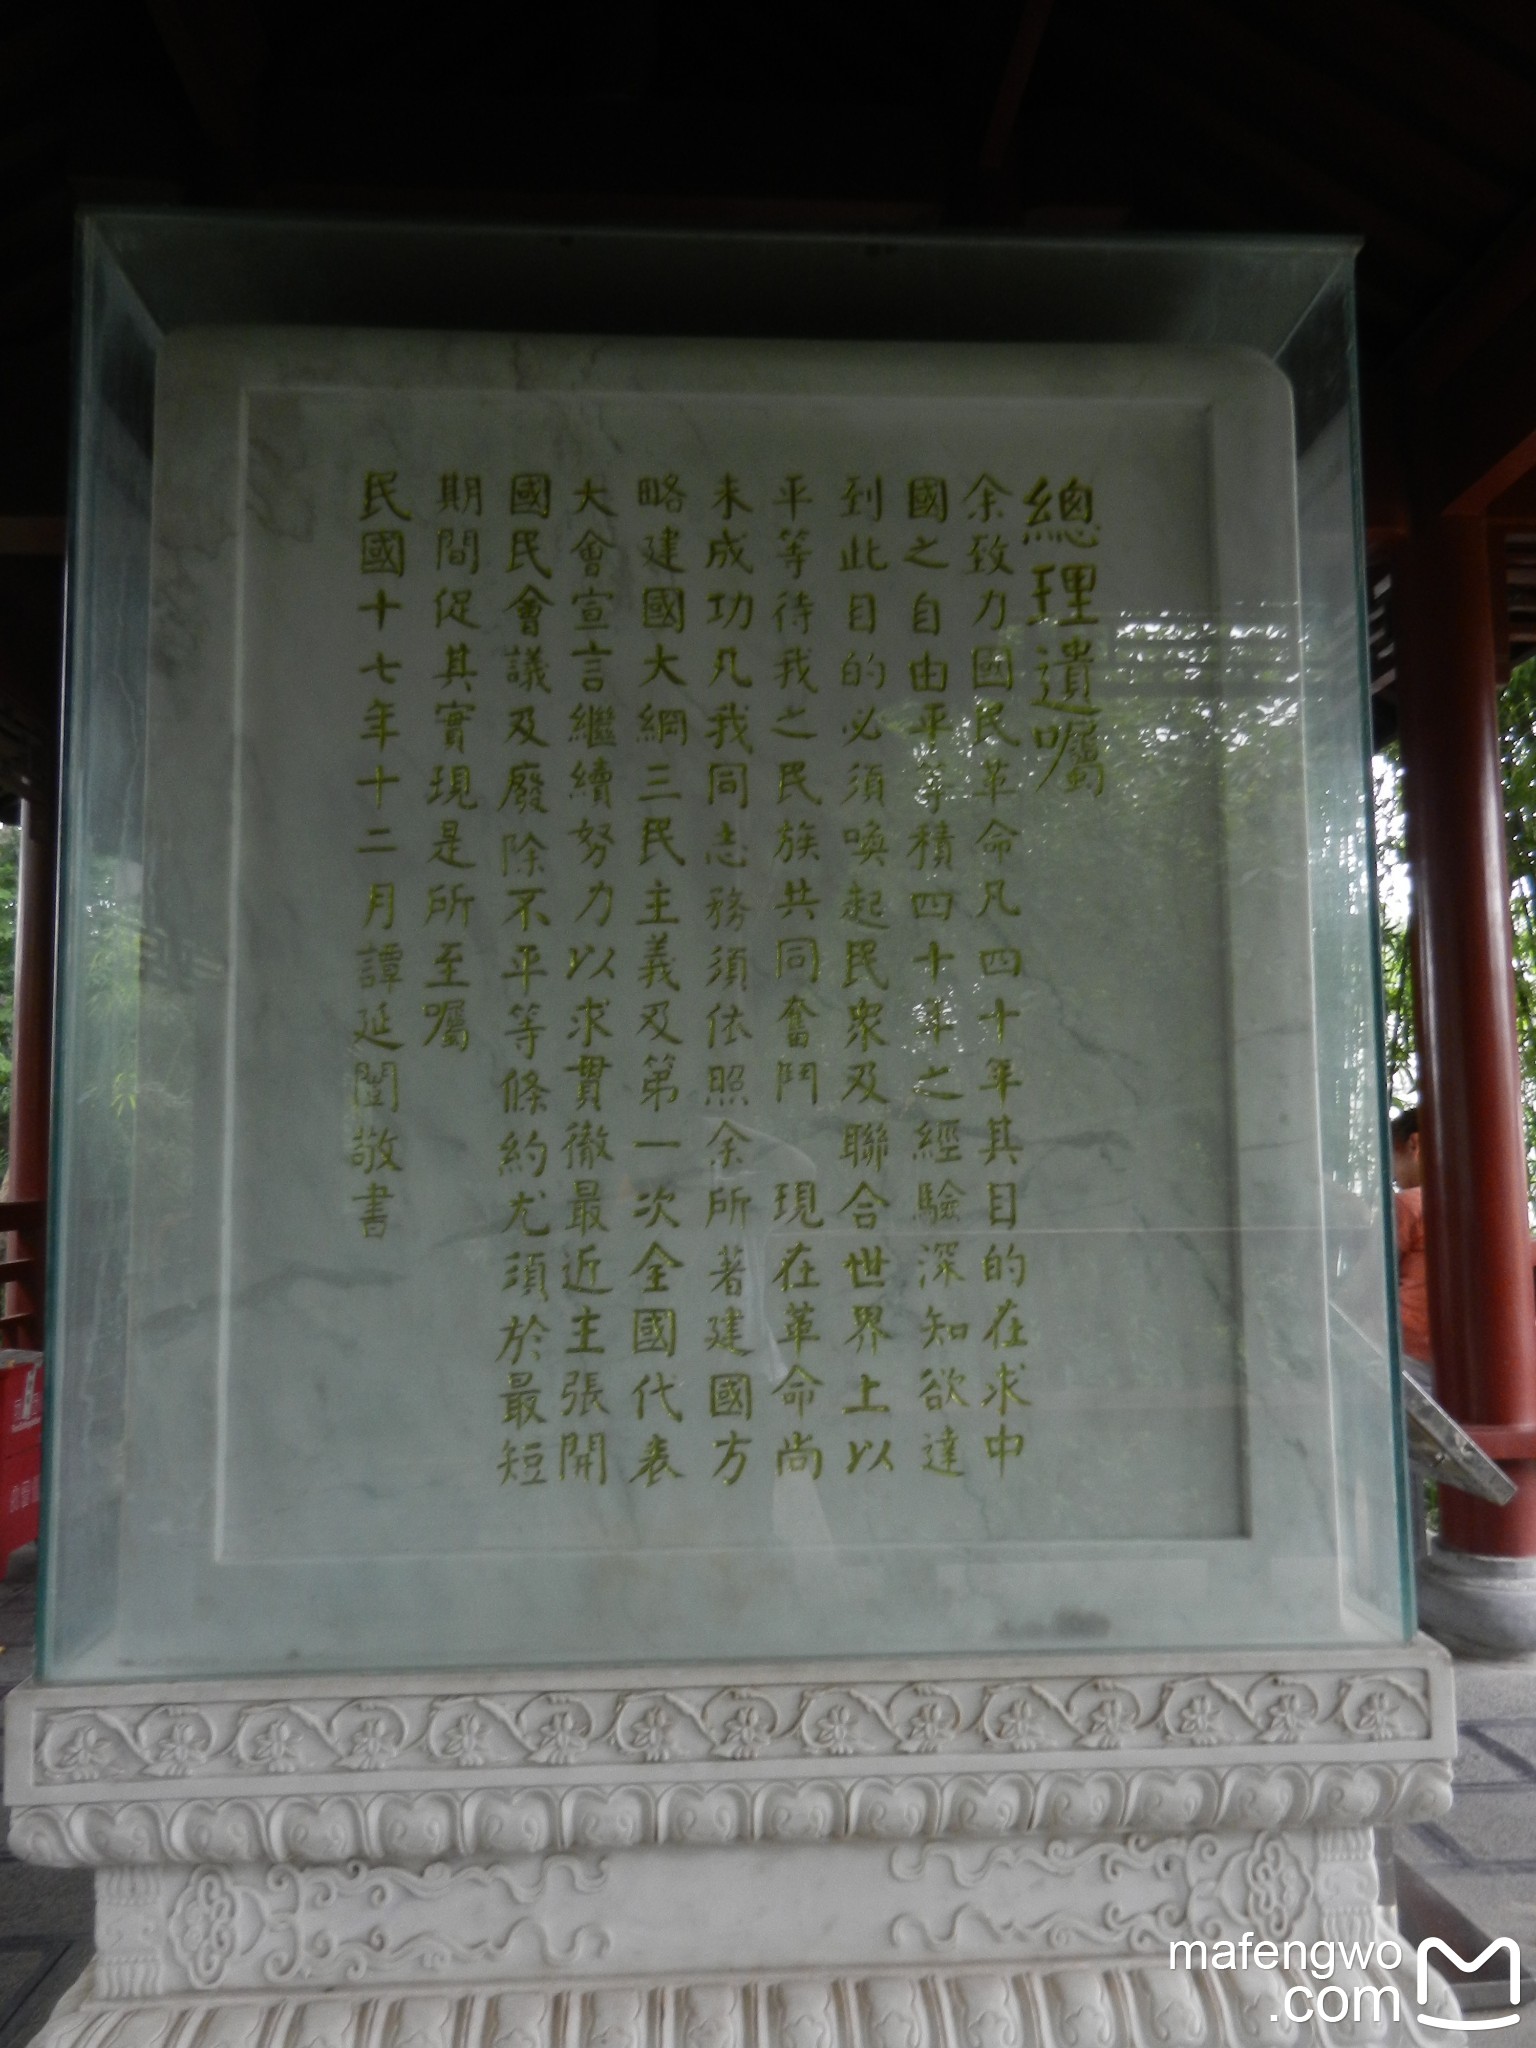 總理遺囑
余致力國民革命凡四十年其目的在求中
國之自由平等積四十年之經驗深知欲達
到此目的必須喚起民衆及聯合世界上以
平等待我之民族共同奮鬥 現在革命尚
未成功凡我同志務須依照余所著建國方
略建國大綱三民主義及第一次全國代表
大會宣言繼續努力以求貫徹最近主張開
國民會議及廢除不平等條約尤須於最短
期間促其實現是所至囑
民國十七年十二月譚延闓敬書
mafengwo
.com